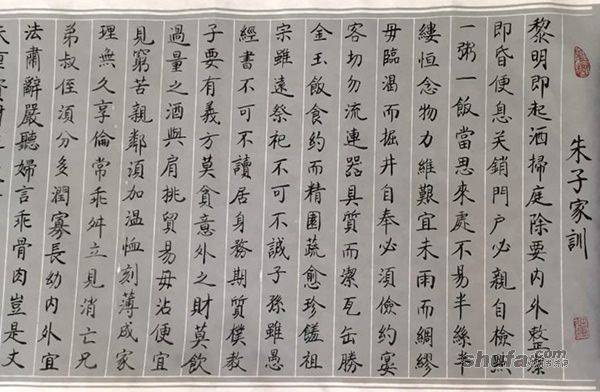 朱子家訓
黎明即起洒掃庭除要内外整潔
即昏便息关鎖門户必親自檢點
一粥一飯當思來處不易半絲半
縷恒念物力維艱宜未雨而綢繆
毋臨渴而掘井自奉必須儉約宴
客切勿流連器具質而潔瓦缶勝
金玉飯食約而精園蔬愈珍饈祖
宗雖遠祭祀不可不誠子孫雖愚
經書不可不讀居身務期質樸教
子要有義方莫貪意外之財莫飲
過量之酒與肩挑貿易毋沾便宜
見窮苦親鄰須加温恤刻薄成家
理無久享倫常乖舛立見消亡兄
弟叔侄須分多潤寡長幼内外宜
法肅辭嚴聽婦言乖骨肉豈是丈
shufa.com